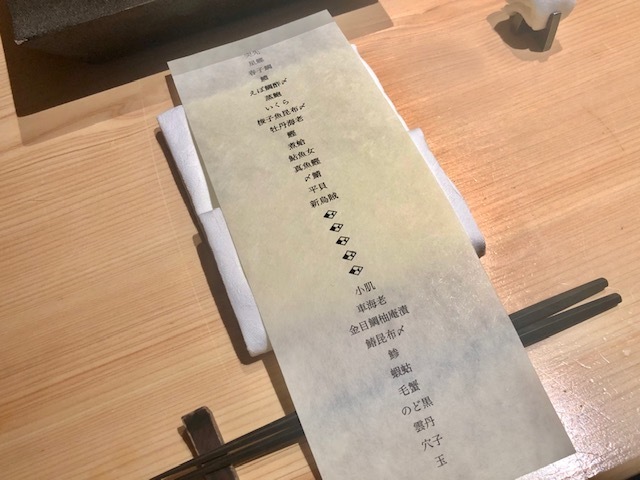 春子鯛
えぼ鯛酢〆
蒸鮑
いくら
梭子魚昆布〆
牡丹海老
鰹
煮蛤
鮎魚女
真魚鰹
〆鯖
平貝
新烏賊
小肌
車海老
金目鯛柚庵漬
鰆昆布〆
鯵
蝦蛄
毛蟹
のど黒
雲丹
穴子
玉